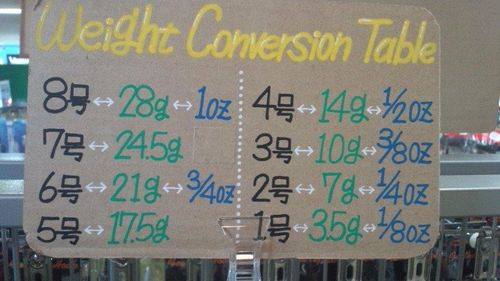 Weight Conversion Table
8号↔28g↔1oz
7号↔24.5g
6号↔21g↔3/4oz
5号↔17.5g
4号↔14g↔1/2oz
3号↔10g↔3/8oz
2号↔7g↔1/4oz
1号↔3.5g↔1/8oz